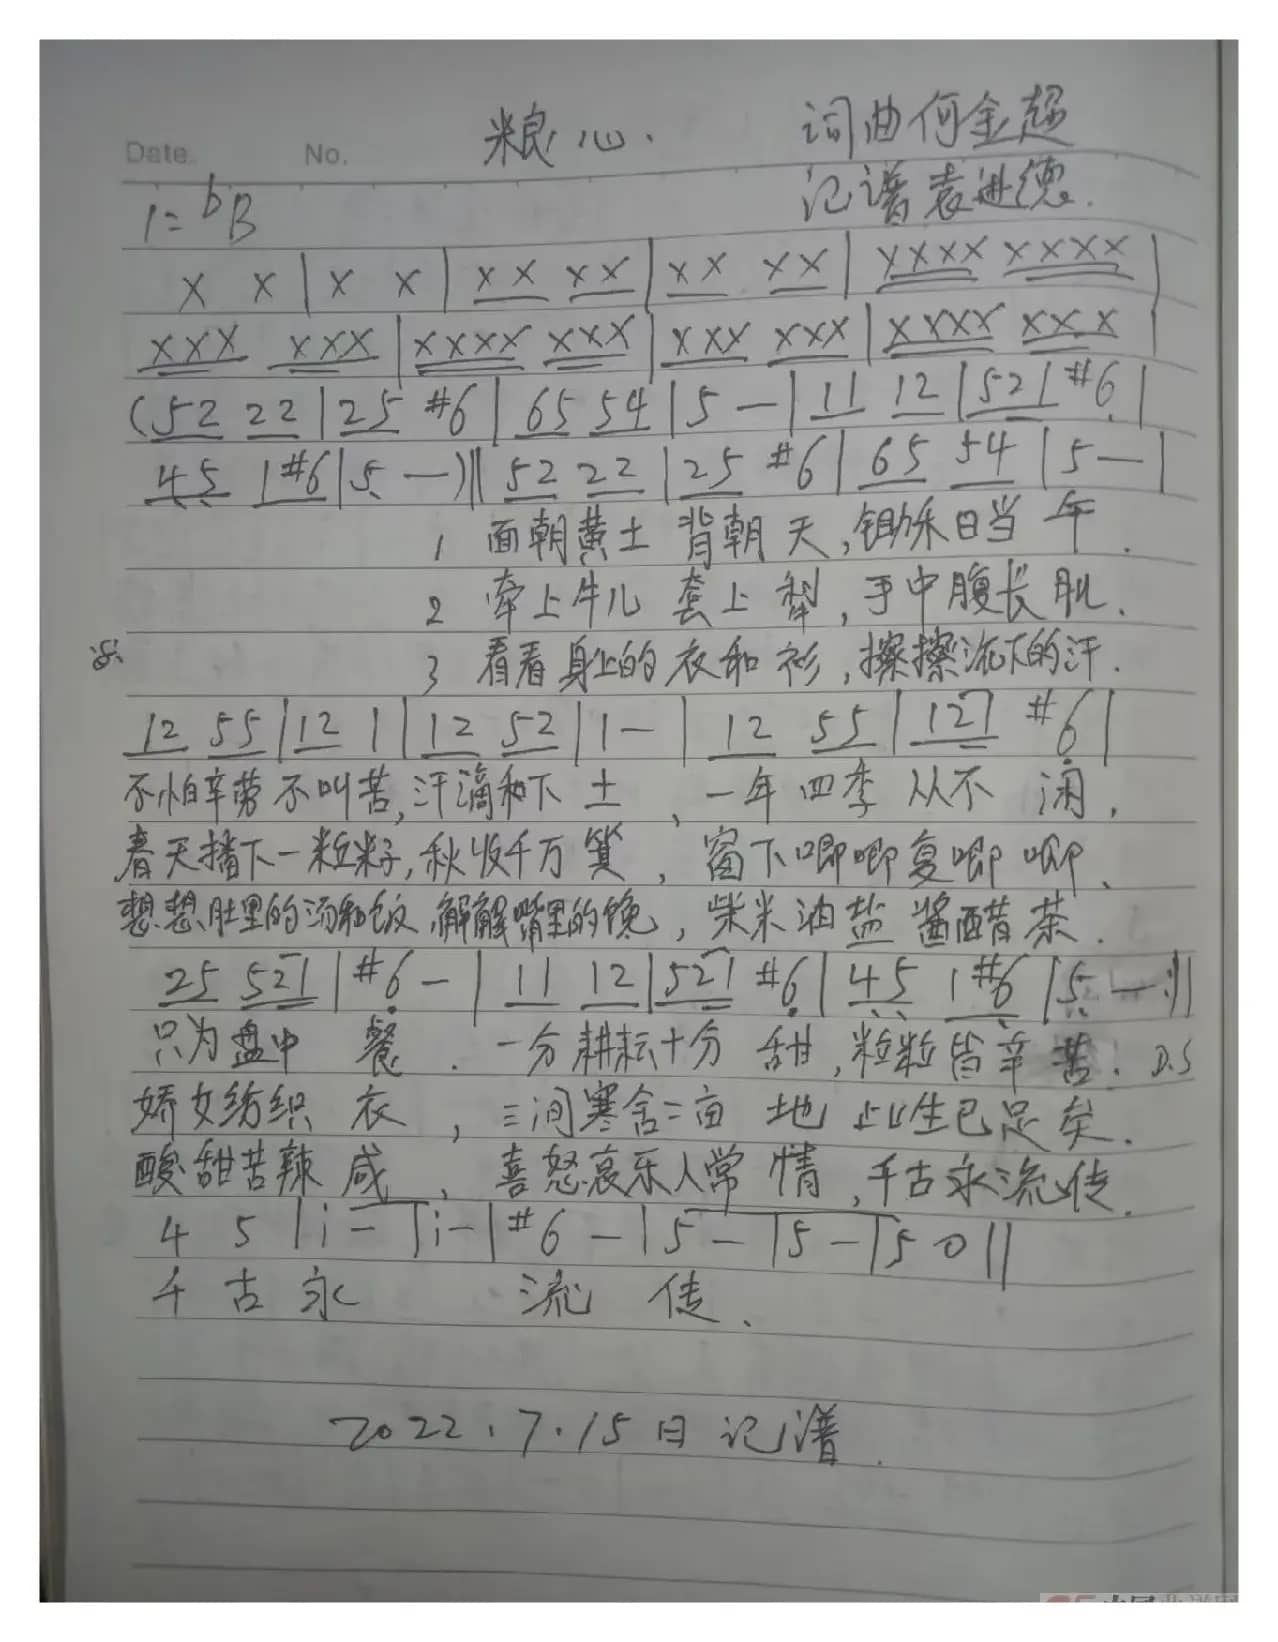 Date. No. 粮心. 词曲何金超
记谱袁进德.
1=bB
X X | X X | XX XX | XX XX | XXXX XXXX |
XXX XXX | XXXX XXX | XXX XXX | XXXX XXX |
(52 22 | 25 #6 | 65 54 | 5 — | 11 12 | 521 #6 |
45 1#6 | 5 —)‖ 52 22 | 25 #6 | 65 54 | 5 — |
1 面朝黄土 背朝天,锄禾日当午.
2 牵上牛儿 套上犁,手中腹长肌.
3 看看身上的衣和衫,擦擦流下的汗.
12 55 | 12 1 | 12 52 | 1 — | 12 55 | 121 #6 |
不怕辛劳不叫苦,汗滴和下土,一年四季从不闲,
春天播下一粒籽,秋收千万箕,窗下唧唧复唧唧、
想想肚里的汤和饭,解解嘴里的馋,柴米油盐酱醋茶.
25 521 | #6 — | 11 12 | 521 #6 | 45 1#6 | 5 — :‖
只为盘中餐.一分耕耘十分甜,粒粒皆辛苦. D.S
娇女纺织衣,三间寒舍二亩地 此生已足矣.
酸甜苦辣咸,喜怒哀乐人常情,千古永流传.
4 5 | i — | i — | #6 — | 5 — | 5 — | 5 0 ‖
千古永 流传、
2022.7.15日记谱.